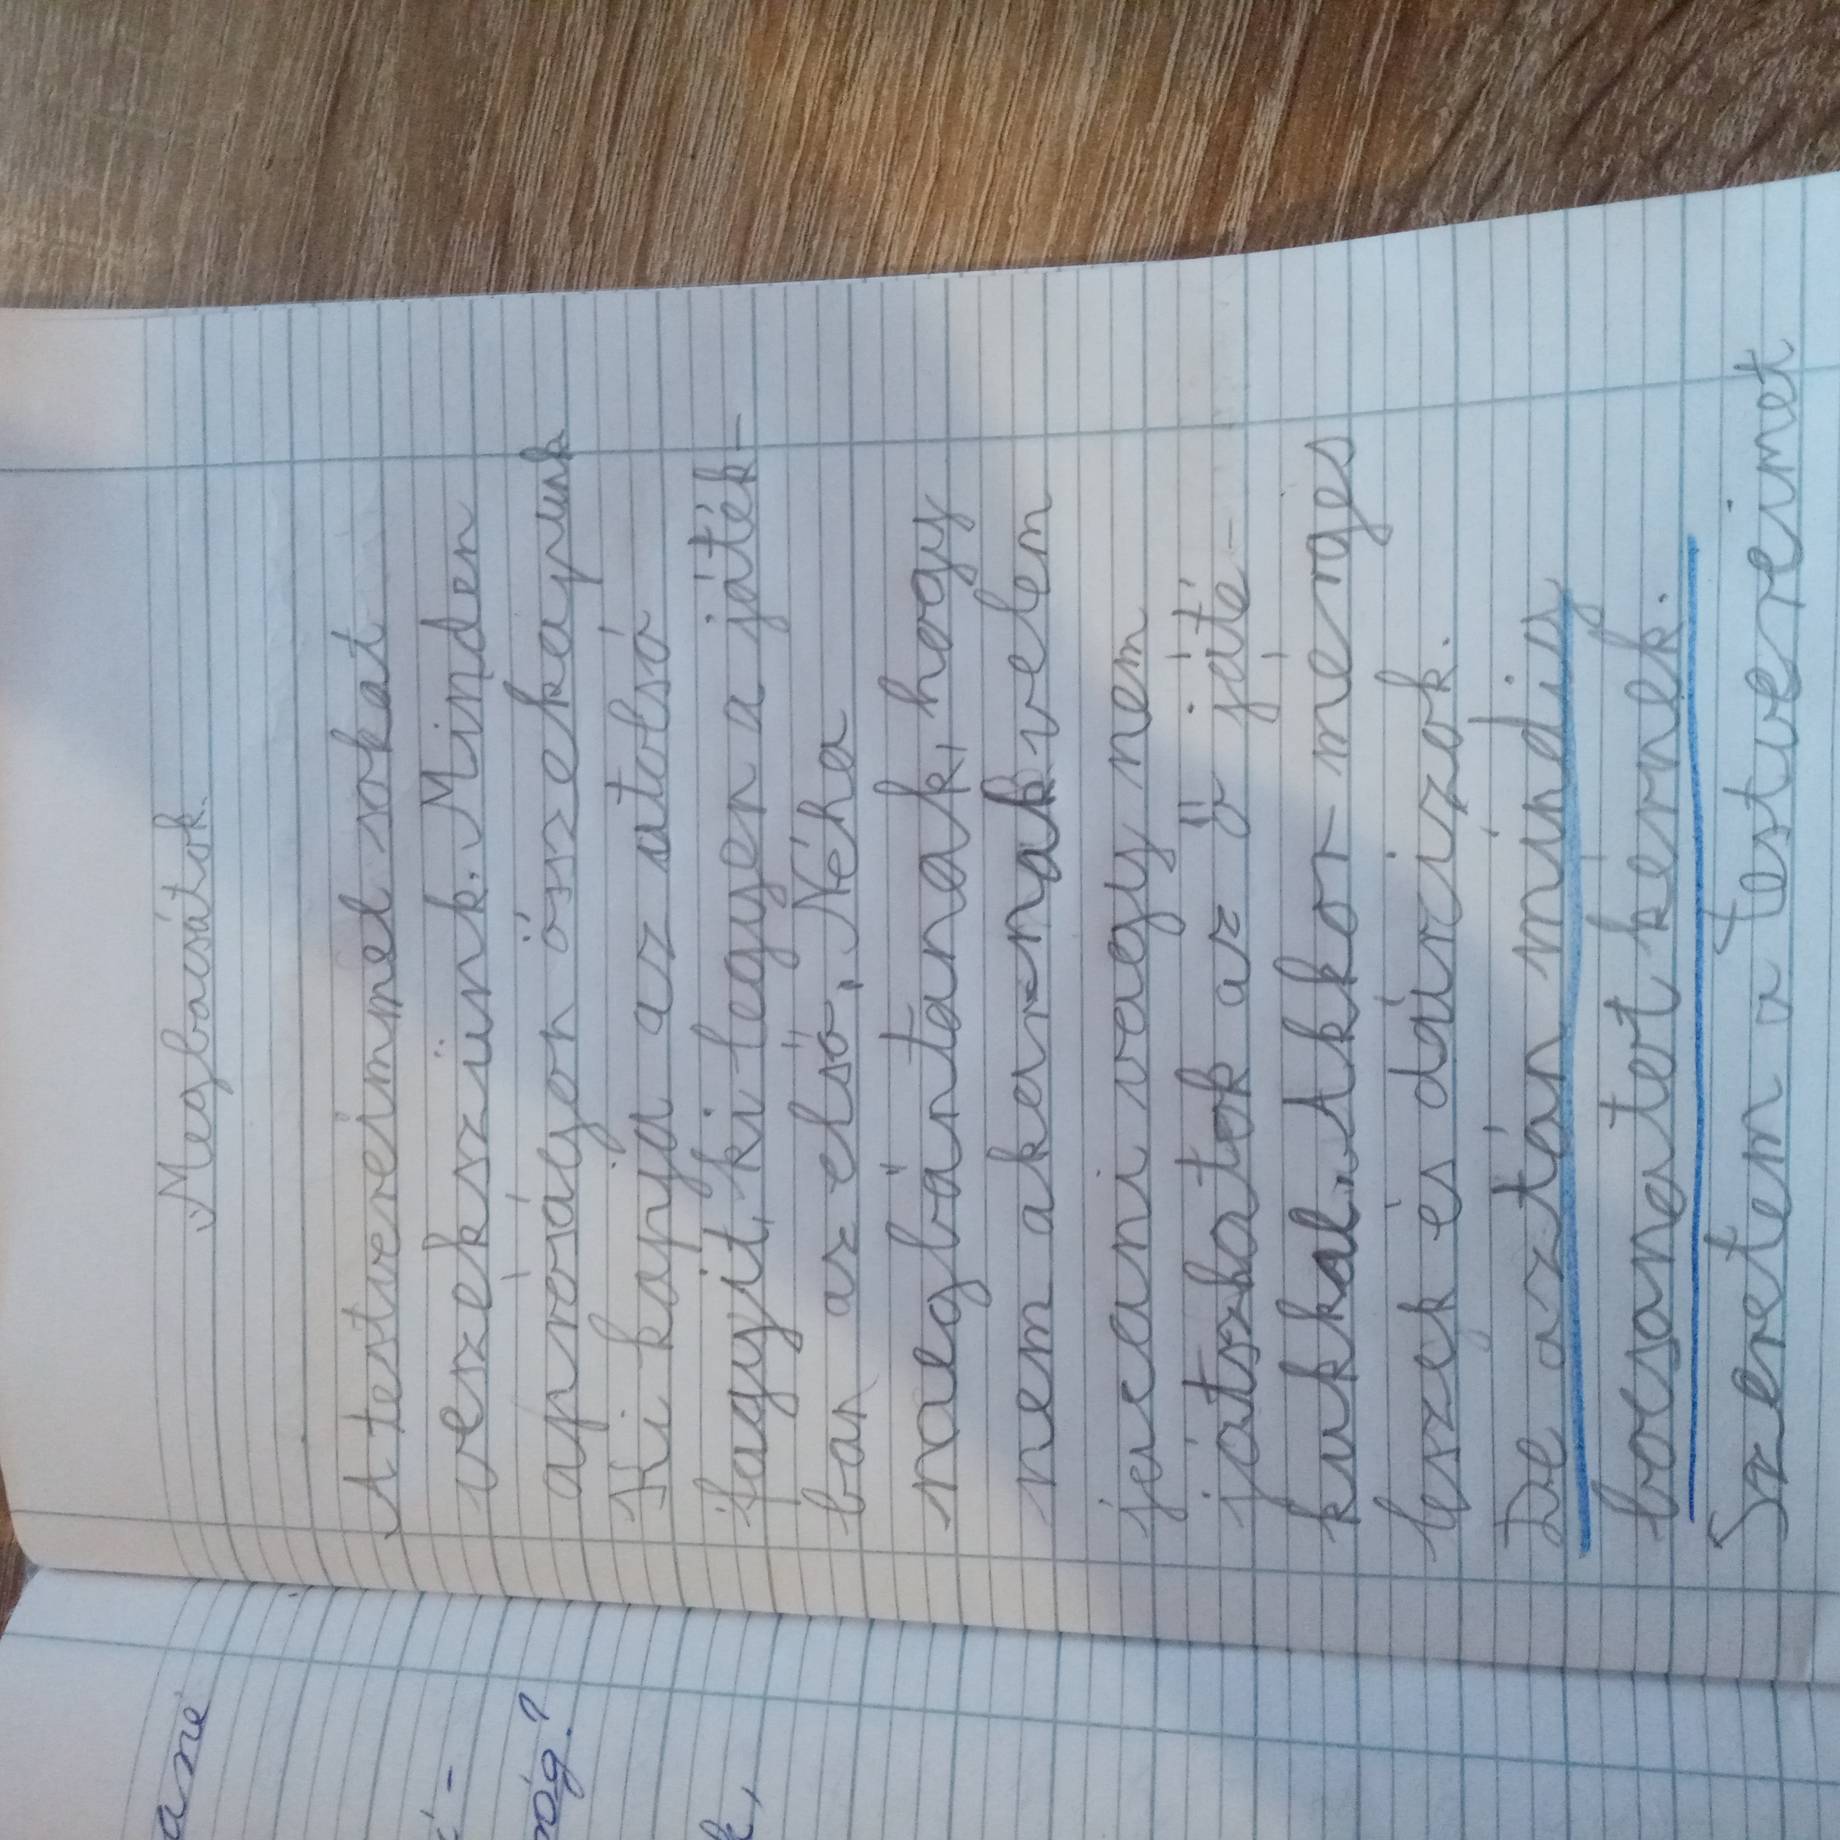 Megbacsátok.
A testvéreimmel sokat
veszekszünk. Minden
apróságon öszekapunk
Ki kapja az utolsó
fagyit, ki legyen a játék-
ban az első. Néha
megbántanak, hogy
nem akarnak velem
jacani vagy nem
játszhatok az ő játé-
kukkal. Akkor merges
leszek és dúrcizok.
De aztán mindig
bocsanatot kérnek.
Szeretem a testvereimet
ané
óg?